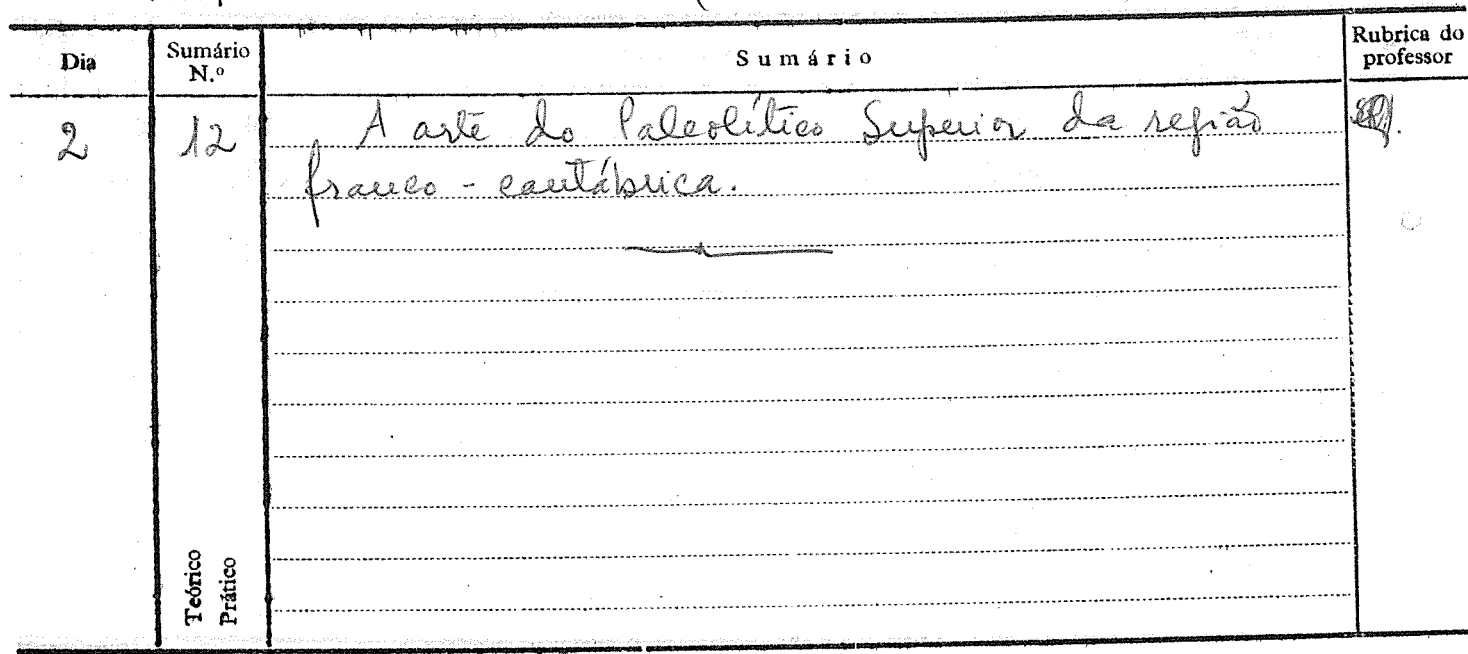 Dia
Sumário N.º
Sumário
Rubrica do professor
2
12
A arte do Paleolítico Superior da região
franco-cantábrica.
Teórico
Prático